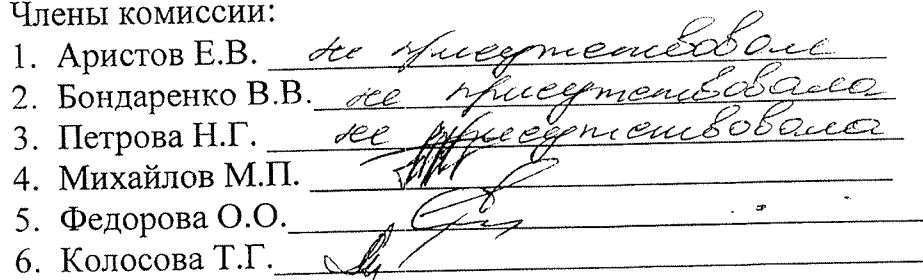 Члены комиссии:
1. Аристов Е.В. не присутствовал
2. Бондаренко В.В. не присутствовала
3. Петрова Н.Г. не присутствовала
4. Михайлов М.П.
5. Федорова О.О.
6. Колосова Т.Г.